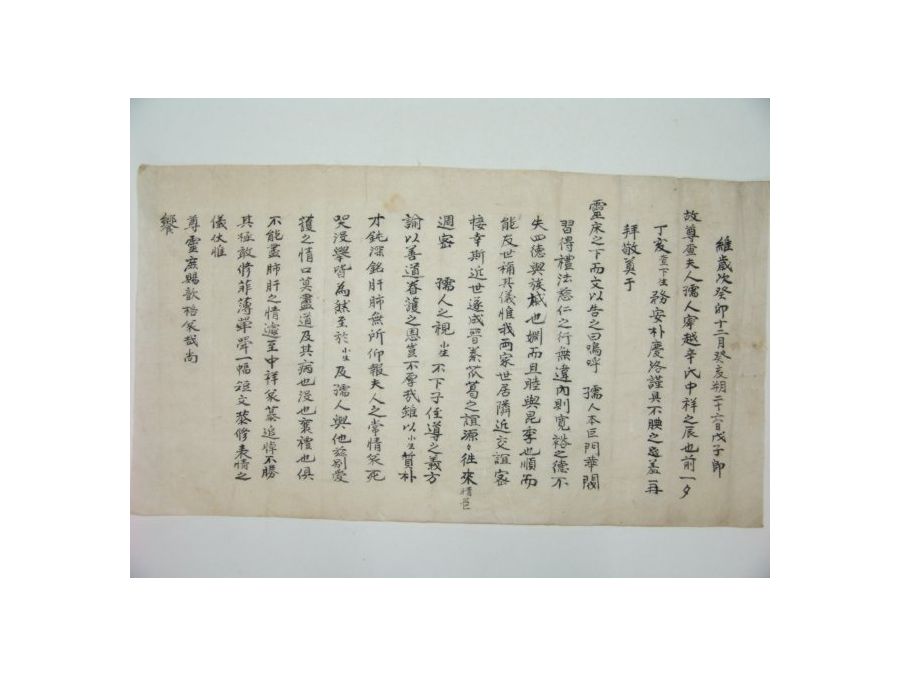 維歲次癸卯十二月癸亥朔二十六日戊子卽
故尊査夫人孺人寧越辛氏中祥之辰也前一夕
丁亥査下生務安朴慶洛謹具不腆之羞再
拜敬奠于
靈床之下而文以告之曰嗚呼 孺人本巨門華閥
習得禮法慈仁之行無違內則寬裕之德不
失四德與族戚也婣而且睦與昆季也順而
能友世稱其儀惟我両家世居隣近交誼密
接幸斯近世遂成晉秦茑葛之誼源々往來情臣
週密 孺人之視小生不下子侄導之義方
諭以善道眷護之恩豈不厚哉雖以小生質朴
才鈍深銘肝肺無所仰報夫人之常情矣死
哭沒擧皆爲然至於小生及孺人與他玆別愛
護之情口莫盡道及其病也沒也襄禮也俱
不能盡肺肝之情遽至中祥矣慕追悼不勝
其極敢修菲薄單單一幅短文恭修表情之
儀伏惟
尊靈庶賜歆格矣哉尚
饗